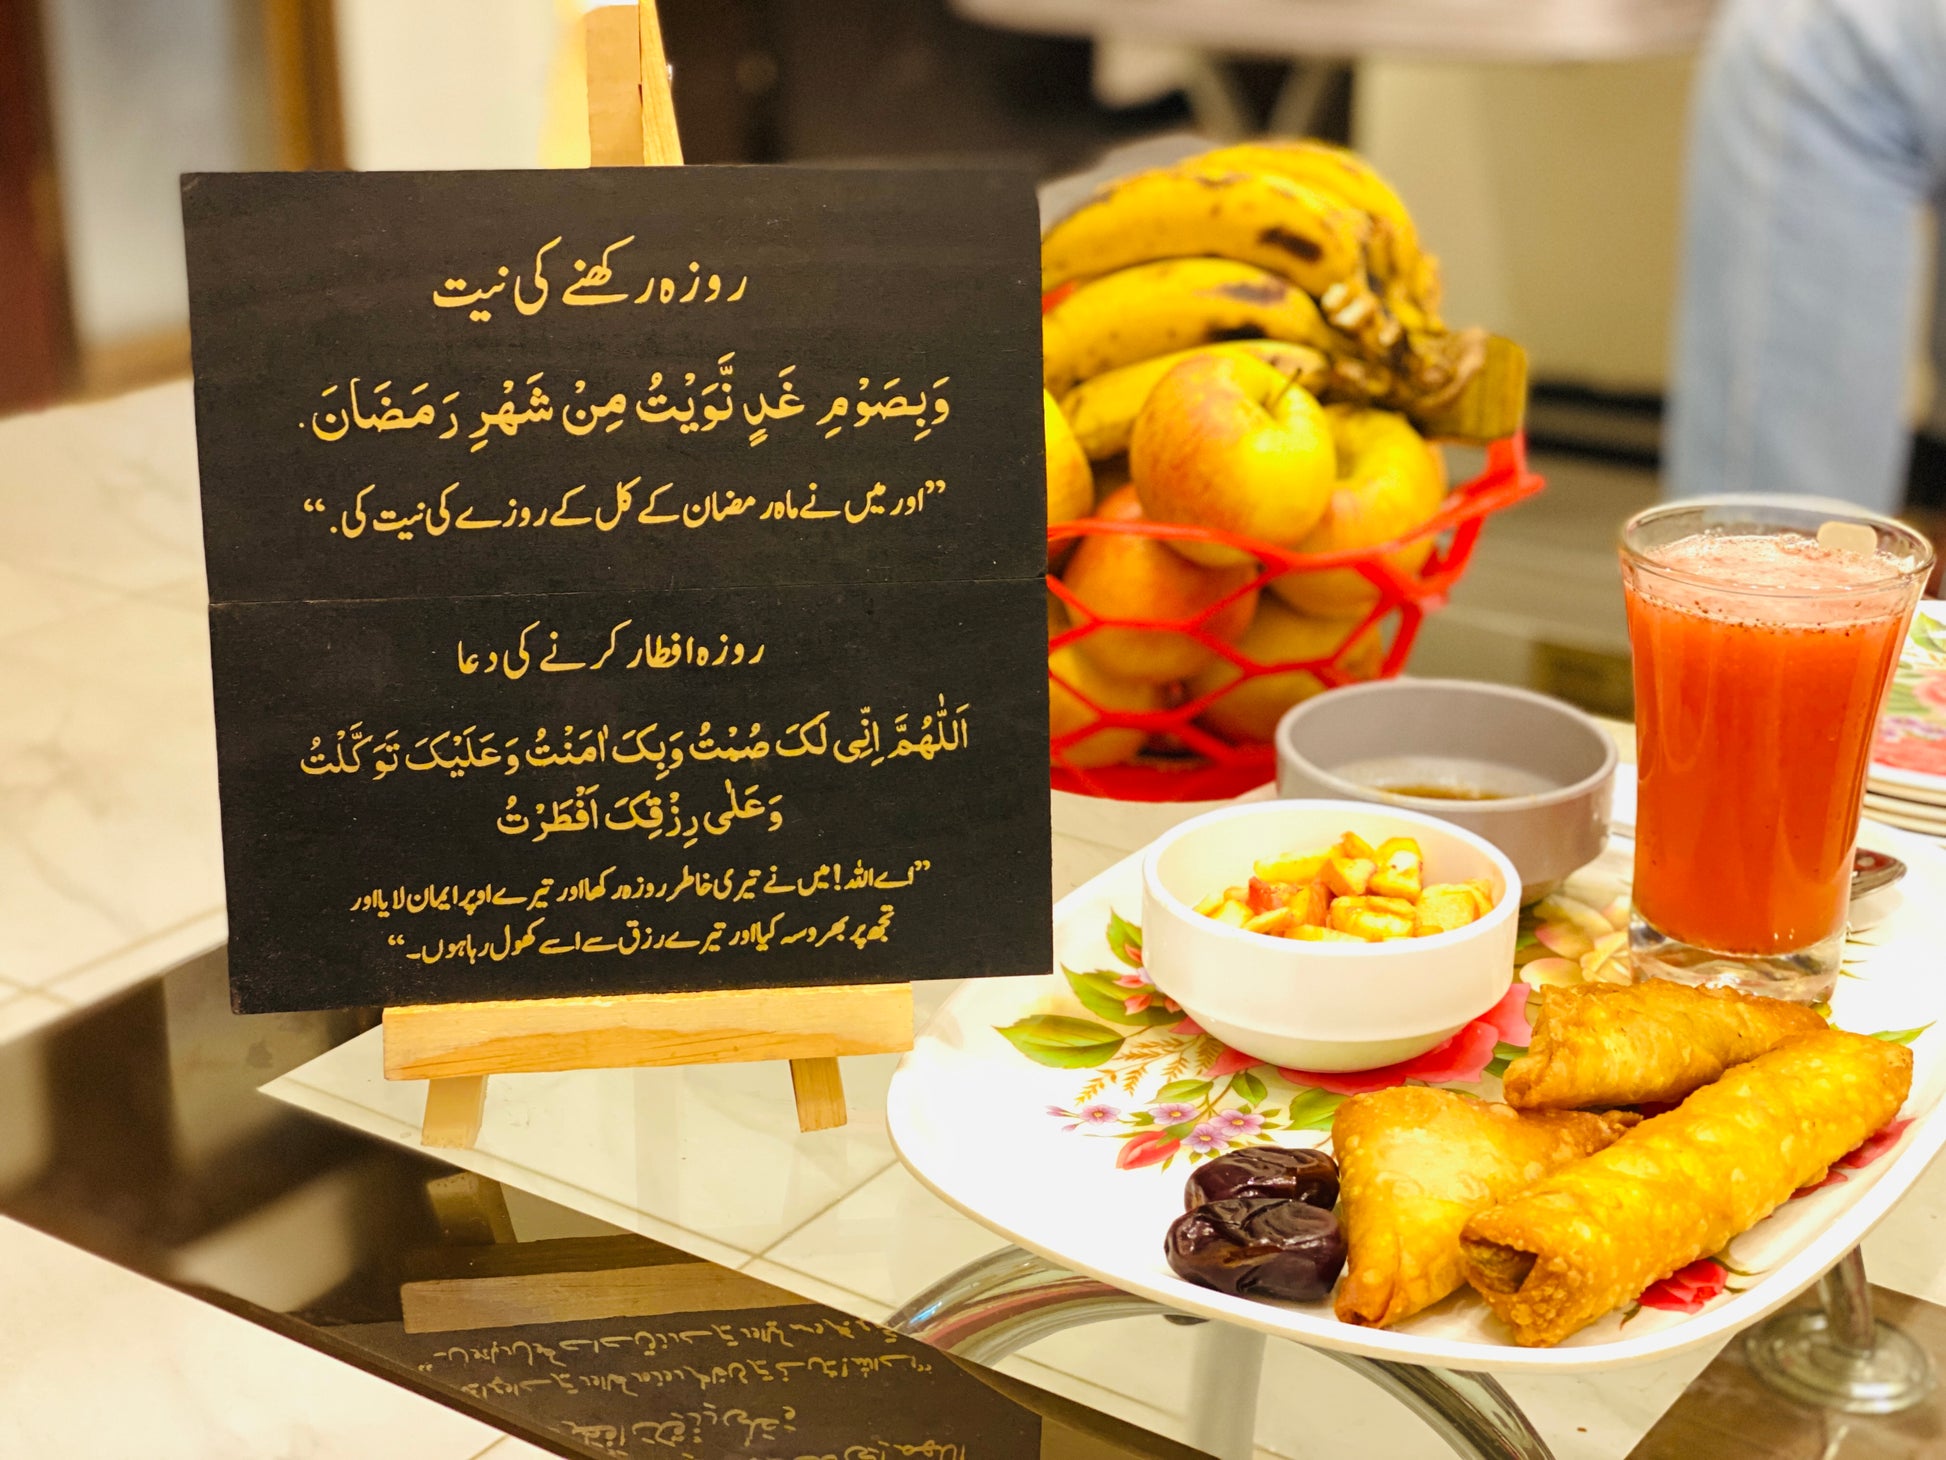 روزہ رکھنے کی نیت
وَبِصَوْمِ غَدٍ نَّوَيْتُ مِنْ شَهْرِ رَمَضَانَ.
”اور میں نے ماہ رمضان کے کل کے روزے کی نیت کی.“
روزہ افطار کرنے کی دعا
اَللّٰهُمَّ اِنِّی لَکَ صُمْتُ وَبِکَ اٰمَنْتُ وَعَلَيْکَ تَوَکَّلْتُ
وَعَلٰی رِزْقِکَ اَفْطَرْتُ
”اے اللہ! میں نے تیری خاطر روزہ رکھا اور تیرے اوپر ایمان لایا اور
تجھ پر بھروسہ کیا اور تیرے رزق سے اسے کھول رہا ہوں۔“